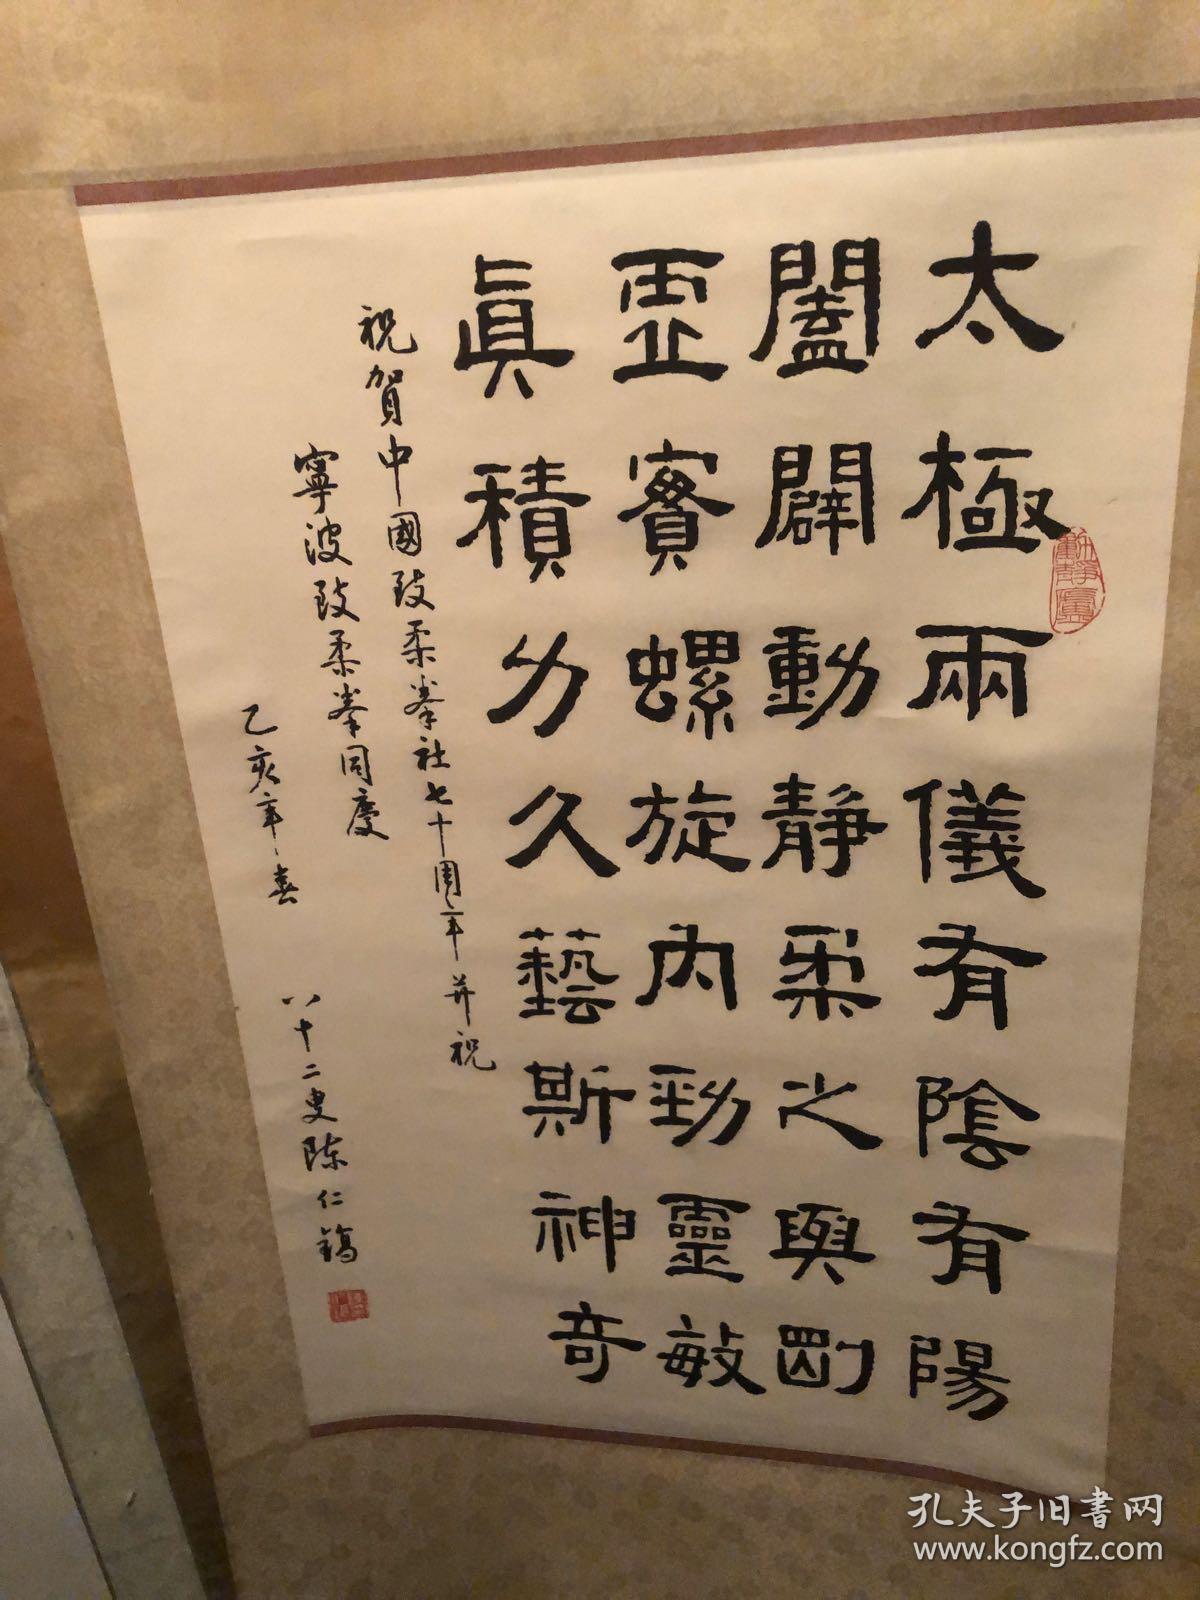 太極兩儀有陰有陽
闔闢動靜柔之與剛
虛實螺旋内勁靈敏
眞積力久藝斯神奇
祝賀中國致柔拳社七十周年并祝
寧波致柔拳同慶
乙亥年春 八十二叟陈仁鎬
孔夫子旧书网
www.kongfz.com